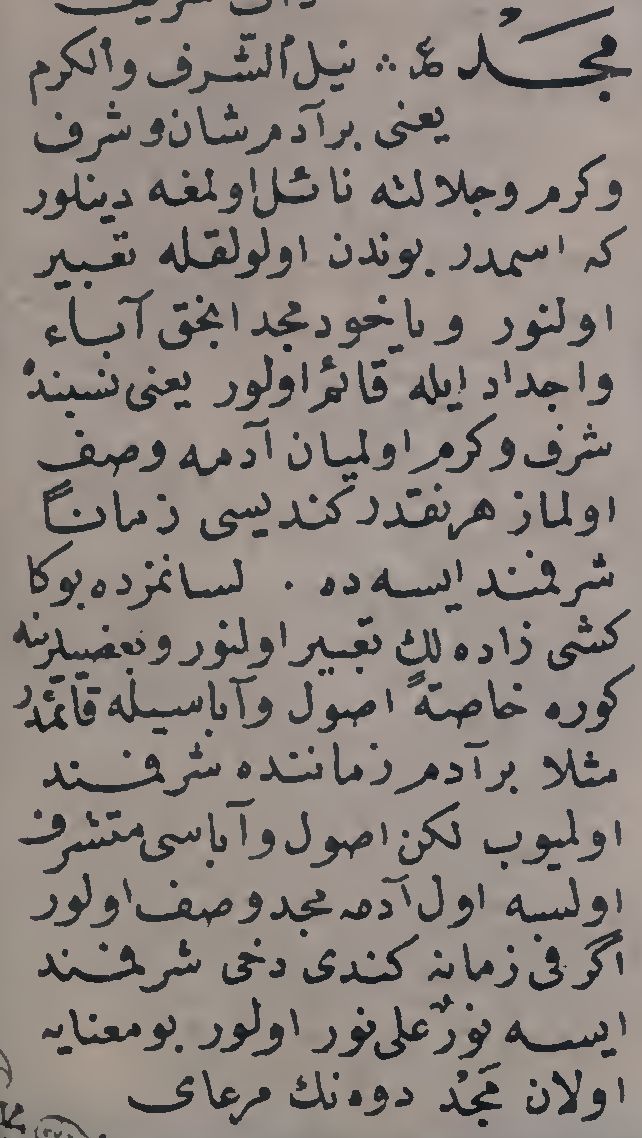 مَجْدٌ ع‍ ∴ نیل الشّرف والکرم
یعنی برآدم شان و شرف
وکرم وجلالته نائل اولمغه دینلور
که اسمدر بوندن اولولقله تعبیر
اولنور ویاخود مجد انجق آباء
واجداد ایله قائم اولور یعنی نسبنده
شرف وکرم اولمیان آدمه وصف
اولماز هرنقدر کندیسی زماناً
شرفمند ایسه ده · لسانمزده بوکا
کشی زاده لك تعبیر اولنور وبعضیلرینه
کوره خاصةً اصول وآباسیله قائمدر
مثلا برآدم زماننده شرفمند
اولمیوب لکن اصول وآباسی متشرف
اولسه اول آدمه مجد وصف اولور
اگر فی زمانه کندی دخی شرفمند
ایسه نورٌ علی نور اولور بو معنایه
اولان مَجْدْ دوه نك مرعای